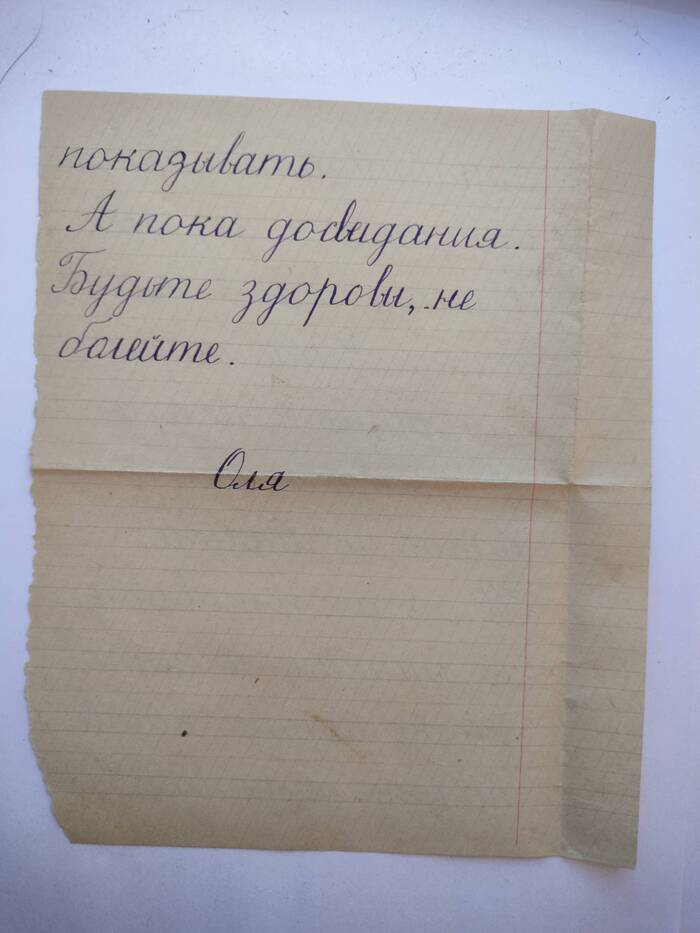 показывать.
А пока досвидания.
Будьте здоровы, не
болейте.
Оля